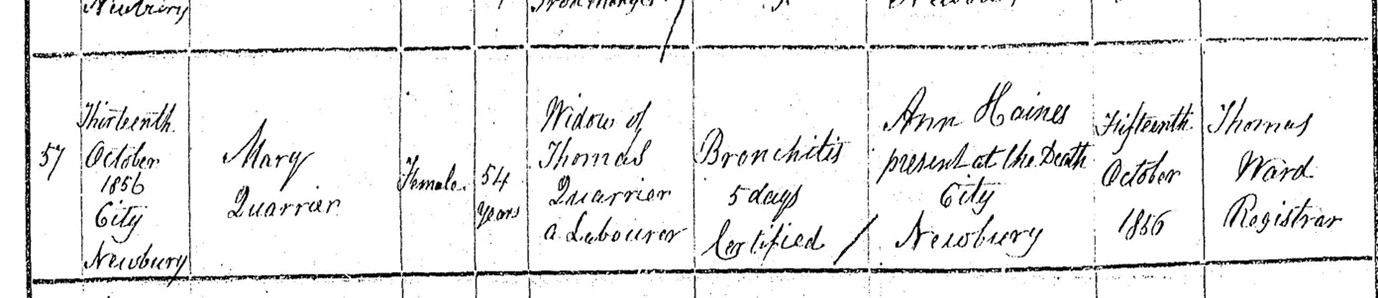 Newbury
Ironmonger
57
Thirteenth
October
1856
City
Newbury
Mary
Quarrier
Female
54
Years
Widow of
Thomas
Quarrier
a Labourer
Bronchitis
5 days
Certified
Ann Haines
present at the Death
City
Newbury
Fifteenth
October
1856
Thomas
Ward
Registrar